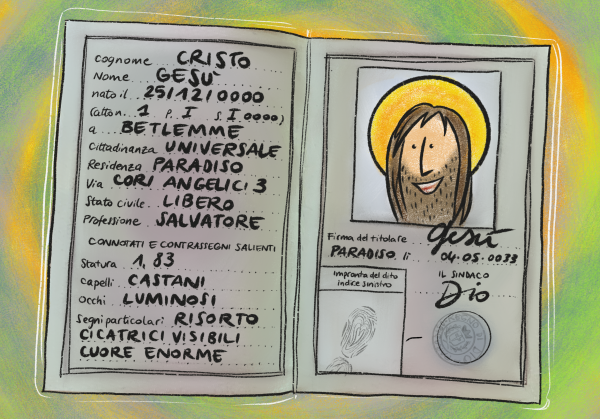 Cognome CRISTO
Nome GESÙ
nato il 25/12/0000
(atto n. 1 P. I S. I 0000)
a BETLEMME
Cittadinanza UNIVERSALE
Residenza PARADISO
Via CORI ANGELICI 3
Stato civile LIBERO
Professione SALVATORE
CONNOTATI E CONTRASSEGNI SALIENTI
Statura 1,83
Capelli CASTANI
Occhi LUMINOSI
Segni particolari RISORTO
CICATRICI VISIBILI
CUORE ENORME
Firma del titolare Gesù
PARADISO lì 04.05.0033
Impronta del dito
indice sinistro
IL SINDACO
Dio